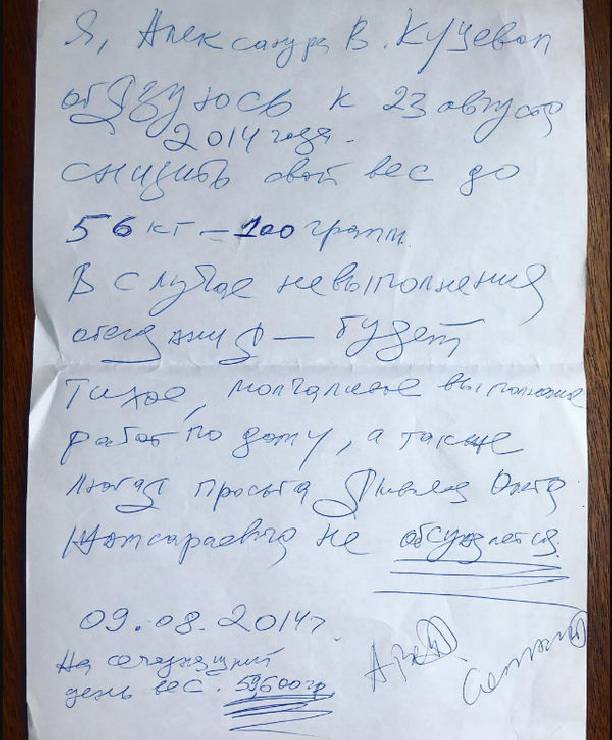 Я, Александра В. Куцевол
обязуюсь к 23 августа
2014 года.
снизить свой вес до
56 кг – 100 грамм.
В случае невыполнения
– будет
тихое, молчаливое выполнение
работ по дому, а также
любая просьба
не обсуждается.
09.08.2014г.
На сегодняшний
день вес. 59,600 гр